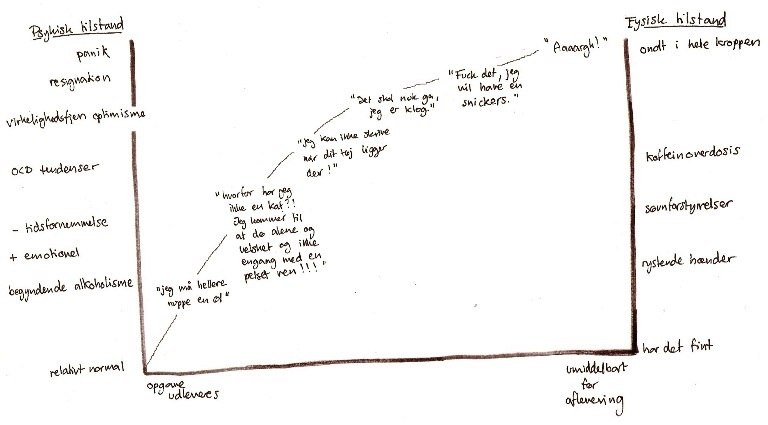 Psykisk tilstand
panik
resignation
virkelighedsfjern optimisme
OCD tendenser
- tidsfornemmelse
+ emotionel
begyndende alkoholisme
relativt normal
opgave
udleveres
"jeg må hellere
nuppe en øl"
"hvorfor har jeg
ikke en kat?!
Jeg kommer til
at dø alene og
uelsket og ikke
engang med en
pelset ven!!!"
"jeg kan ikke skrive
når dit tøj ligger
der!"
"Det skal nok gå,
jeg er klog."
"Fuck det, jeg
vil have en
snickers."
"Aaaargh!"
Fysisk tilstand
ondt i hele kroppen
koffeinoverdosis
søvnforstyrrelser
rystende hænder
har det fint
umiddelbart
før
aflevering